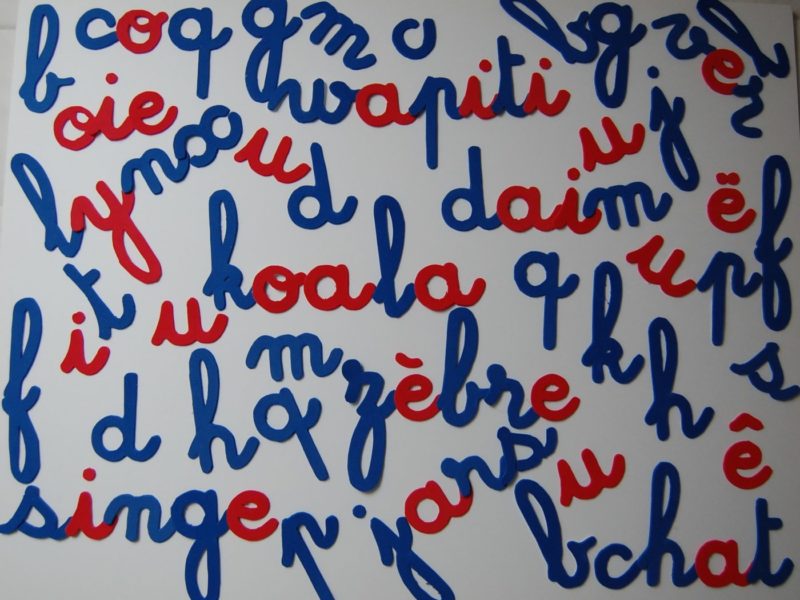 b coq g m c b g ver l
oie wapiti u j
lynx u d daim ë
t koala q u p f
i u m k
f d h q zèbre h s
jars u ê
singe p b chat